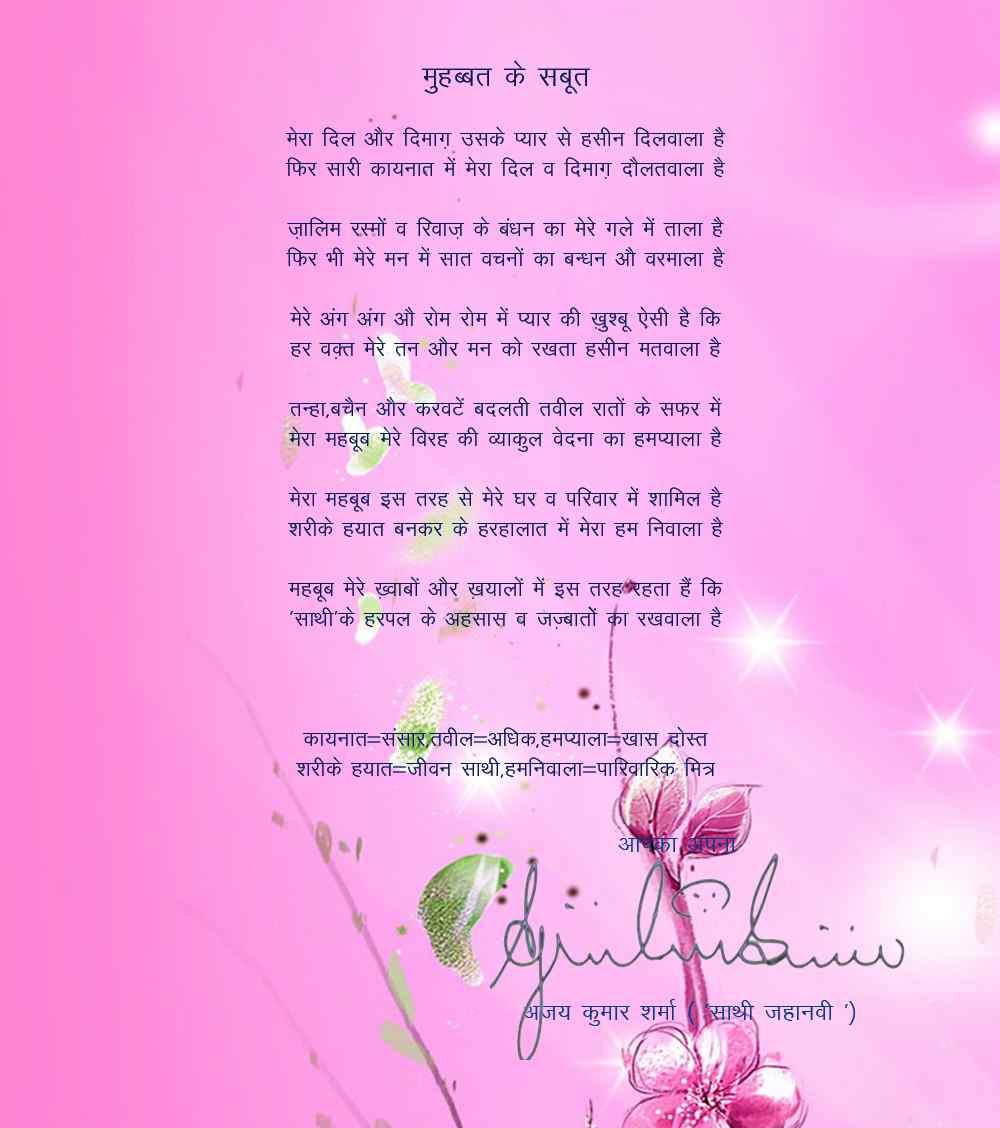 मुहब्बत के सबूत
मेरा दिल और दिमाग़ उसके प्यार से हसीन दिलवाला है
फिर सारी कायनात में मेरा दिल व दिमाग़ दौलतवाला है
ज़ालिम रस्मों व रिवाज़ के बंधन का मेरे गले में ताला है
फिर भी मेरे मन में सात वचनों का बन्धन औ वरमाला है
मेरे अंग अंग औ रोम रोम में प्यार की ख़ुश्बू ऐसी है कि
हर वक़्त मेरे तन और मन को रखता हसीन मतवाला है
तन्हा,बचैन और करवटें बदलती तवील रातों के सफर में
मेरा महबूब मेरे विरह की व्याकुल वेदना का हमप्याला है
मेरा महबूब इस तरह से मेरे घर व परिवार में शामिल है
शरीके हयात बनकर के हरहालात में मेरा हम निवाला है
महबूब मेरे ख़्वाबों और ख़यालों में इस तरह रहता हैं कि
'साथी'के हरपल के अहसास व जज़्बातों का रखवाला है
कायनात=संसार,तवील=अधिक,हमप्याला=खास दोस्त
शरीके हयात=जीवन साथी,हमनिवाला=पारिवारिक मित्र
आपका अपना
अजय कुमार शर्मा ( 'साथी जहानवी ')